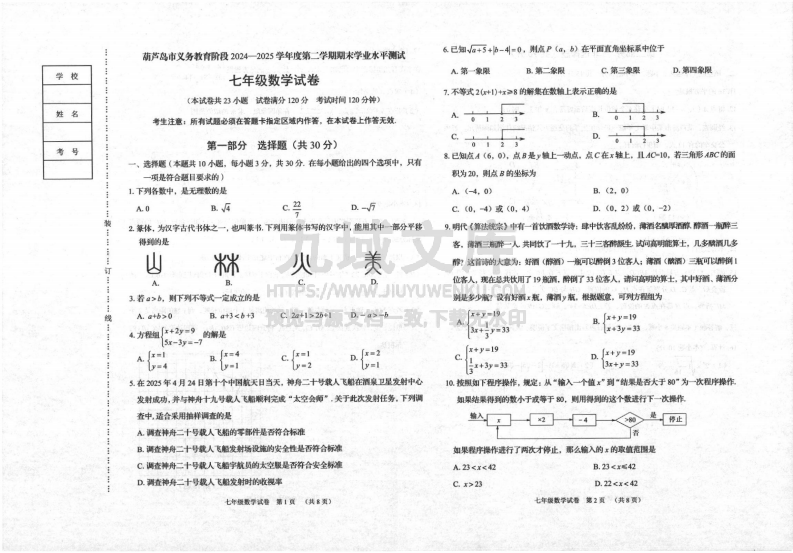 学 校
姓 名
考 号
装
订
线
葫芦岛市义务教育阶段 2024—2025 学年度第二学期期末学业水平测试
七年级数学试卷
（本试卷共 23 小题 试卷满分 120 分 考试时间 120 分钟）
考生注意：所有试题必须在答题卡指定区域内作答，在本试卷上作答无效.
第一部分 选择题（共 30 分）
一、选择题（本题共 10 小题，每小题 3 分，共 30 分. 在每小题给出的四个选项中，只有
一项是符合题目要求的）
1. 下列各数中，是无理数的是
A. 0 B. √4 C. 22/7 D. -√7
2. 篆体，为汉字古代书体之一，也叫篆书. 下列用篆体书写的汉字中，能用其中一部分平移
得到的是
A. B. C. D.
3. 若 a＞b，则下列不等式一定成立的是
A. a+b＞0 B. a+3＜b+3 C. 2a+1＞2b+1 D. -a＞-b
4. 方程组{x+2y=9 5x-3y=-7 的解是
A. {x=1 y=4 B. {x=4 y=1 C. {x=1 y=2 D. {x=2 y=1
5. 在 2025 年 4 月 24 日第十个中国航天日当天，神舟二十号载人飞船在酒泉卫星发射中心
发射成功，并与神舟十九号载人飞船顺利完成“太空会师”. 关于此次发射任务，下列调
查中，适合采用抽样调查的是
A. 调查神舟二十号载人飞船的零部件是否符合标准
B. 调查神舟二十号载人飞船发射场设施的安全性是否符合标准
C. 调查神舟二十号载人飞船宇航员的太空服是否符合安全标准
D. 调查神舟二十号载人飞船发射时的收视率
七年级数学试卷 第 1 页 （共 8 页）
6. 已知√a+5+|b-4|=0，则点 P（a，b）在平面直角坐标系中位于
A. 第一象限 B. 第二象限 C. 第三象限 D. 第四象限
7. 不等式 2(x+1)+x≥8 的解集在数轴上表示正确的是
A. 0 1 2 3 B. 0 1 2 3
C. 0 1 2 3 D. 0 1 2 3
8. 已知点 A（6，0），点 B 是 y 轴上一动点，点 C 在 x 轴上，且 AC=10，若三角形 ABC 的面
积为 20，则点 B 的坐标为
A.（-4，0） B.（2，0）
C.（0，-4）或（0，4） D.（0，2）或（0，-2）
9. 明代《算法统宗》中有一首饮酒数学诗：肆中饮客乱纷纷，薄酒名醨厚酒醇. 醇酒一瓶醉三
客，薄酒三瓶醉一人. 共同饮了一十九，三十三客醉颜生. 试问高明能算士，几多醨酒几多
醇？这首诗的大意为：好酒（醇酒）一瓶可以醉倒 3 位客人；薄酒（醨酒）三瓶可以醉倒 1
位客人，现在总共饮用了 19 瓶酒，醉倒了 33 位客人，请问高明的算士，其中好酒、薄酒分
别是多少瓶？设有好酒 x 瓶，薄酒 y 瓶，根据题意，可列方程组为
A. {x+y=19 3x+1/3y=33 B. {x+y=19 x+3y=33
C. {x+y=19 1/3x+3y=33 D. {x+y=19 3x+y=33
10. 按照如下程序操作，规定：从“输入一个值 x”到“结果是否大于 80”为一次程序操作.
如果结果得到的数小于或等于 80，则用得到的这个数进行下一次操作.
输入 x ×2 －4 ＞80 是 停止
否
如果程序操作进行了两次才停止，那么输入的 x 的取值范围是
A. 23＜x＜42 B. 23＜x≤42
C. x＞23 D. 22＜x＜42
七年级数学试卷 第 2 页 （共 8 页）
九域文库
HTTPS://WWW.JIUYUWENKU.COM
预览与源文档一致，下载无水印